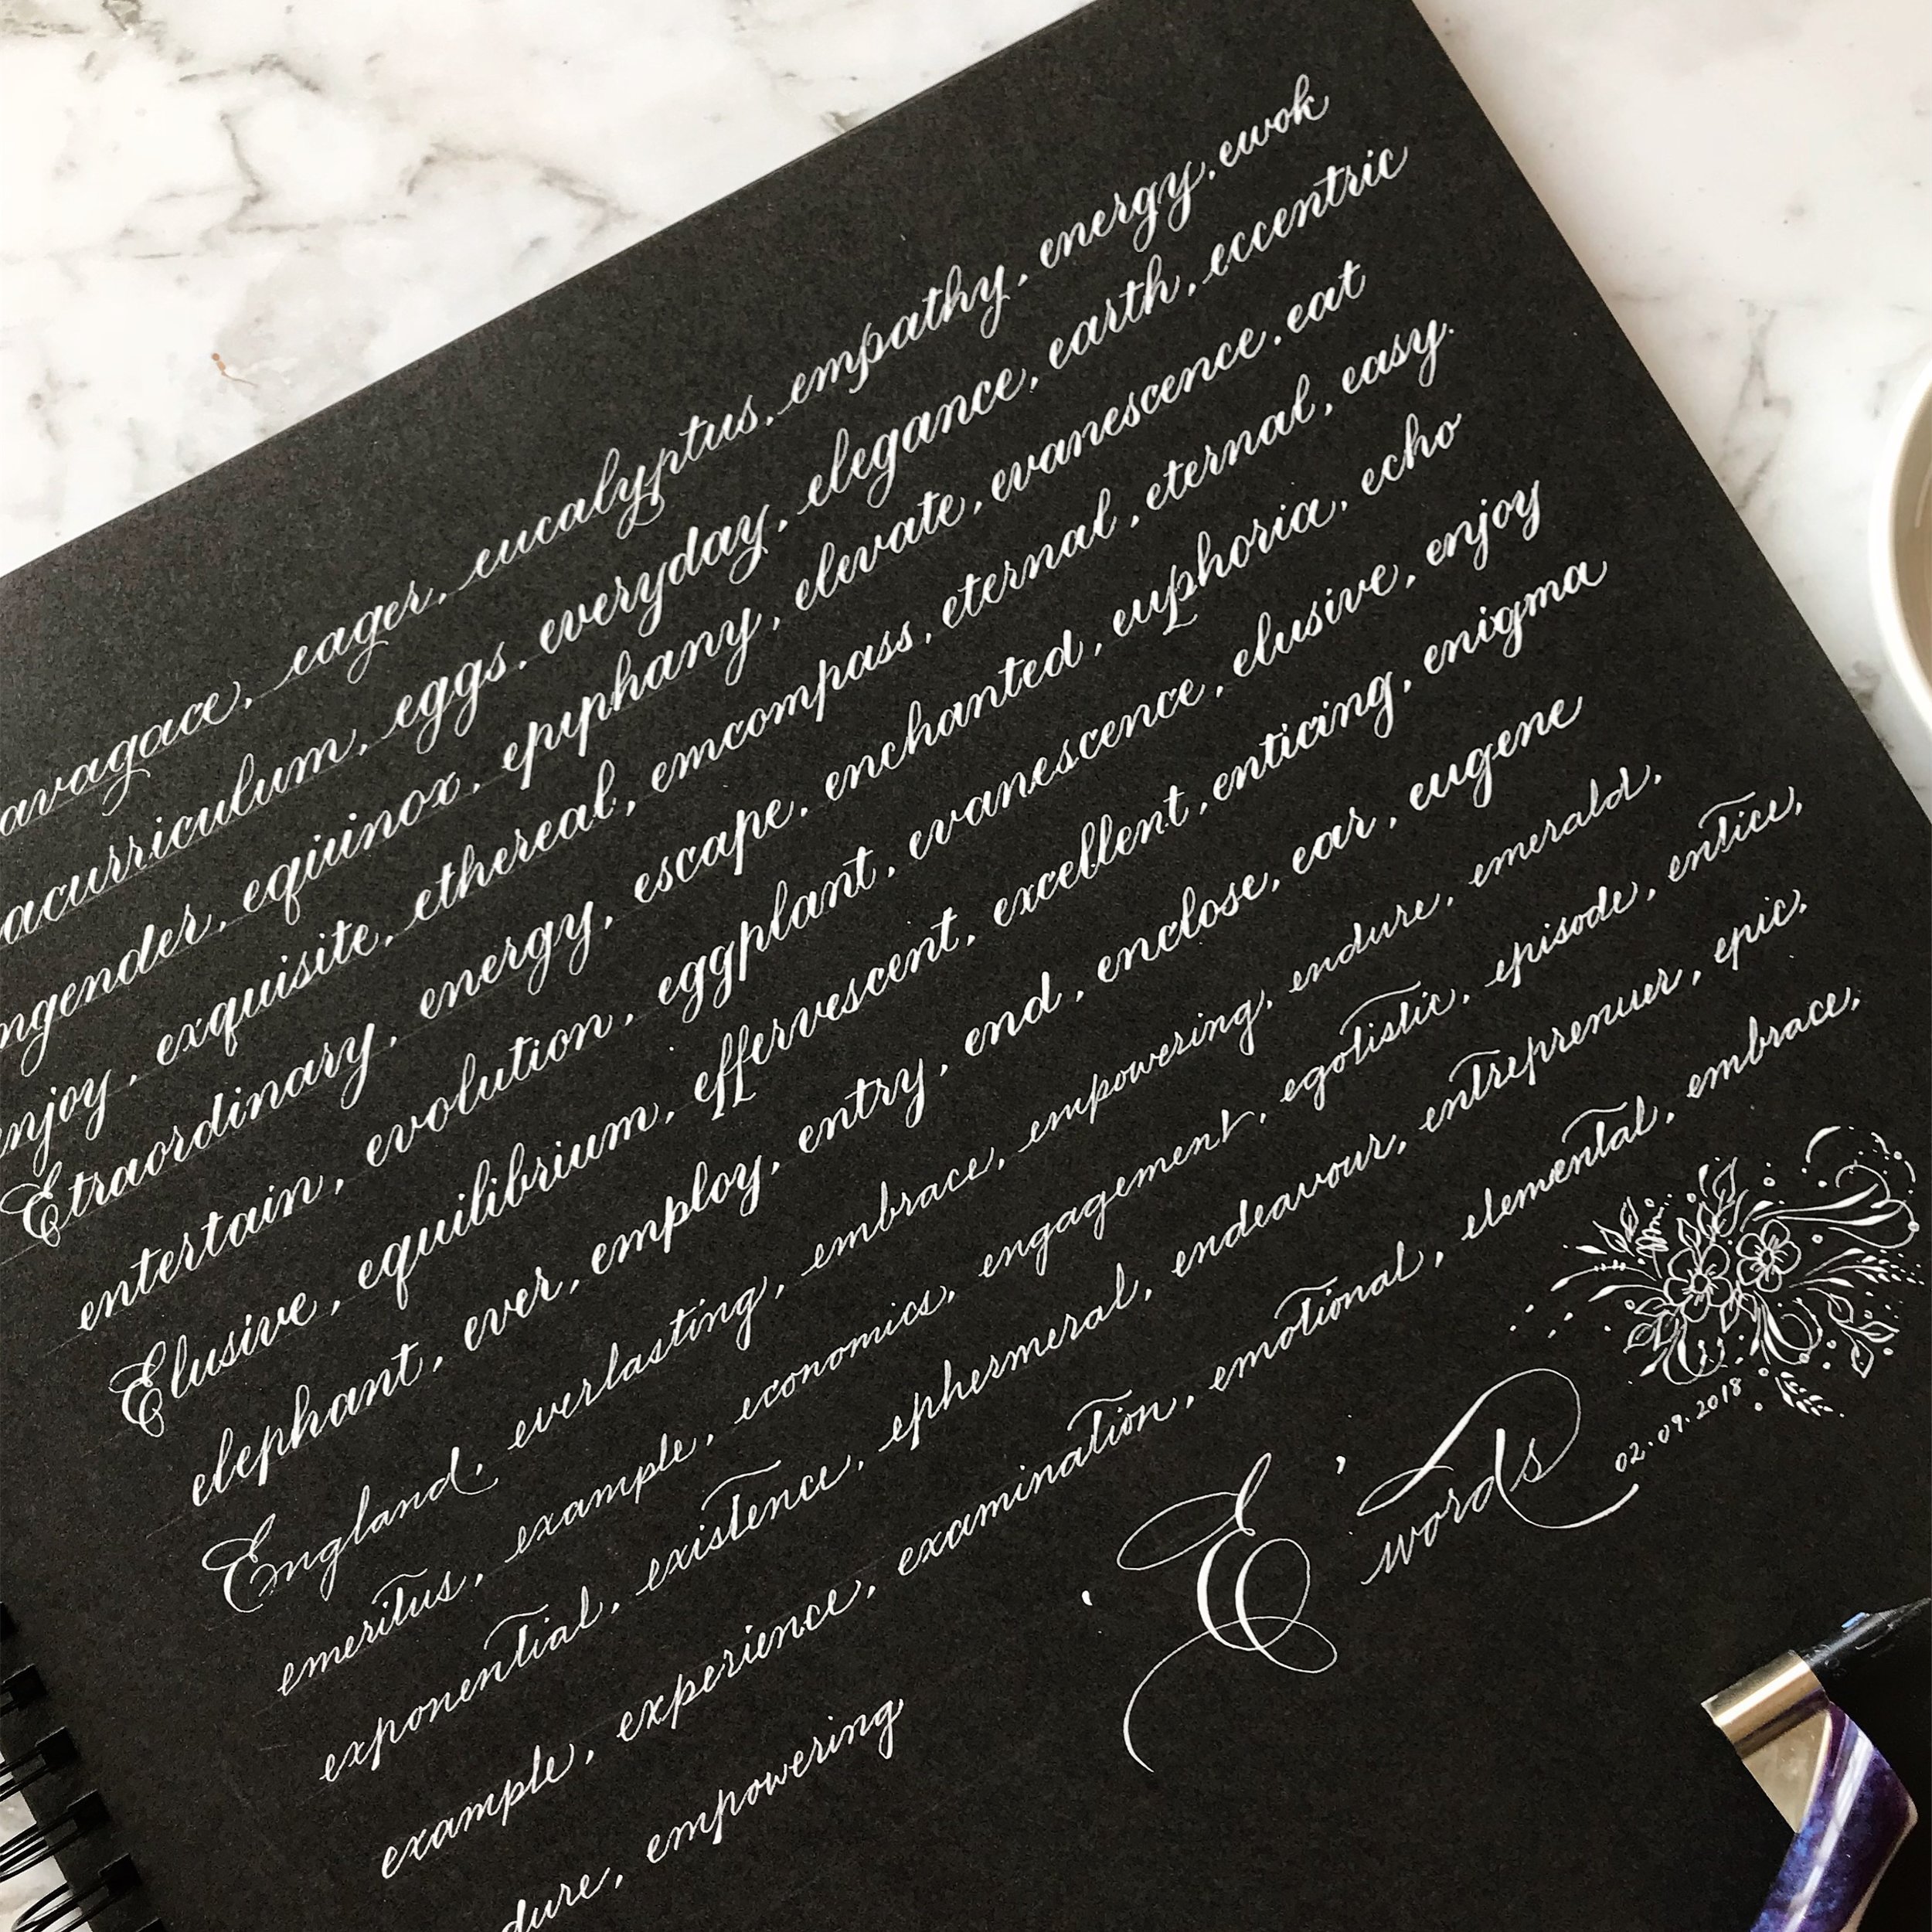 avagace, eager, eucalyptus, empathy, energy, ewok
acurriculum, eggs, everyday, elegance, earth, eccentric
ngender, equinox, epiphany, elevate, evanescence, eat
enjoy, exquisite, ethereal, emcompass, eternal, eternal, easy.
Etraordinary, energy, escape, enchanted, euphoria, echo
entertain, evolution, eggplant, evanescence, elusive, enjoy
Elusive, equilibrium, effervescent, excellent, enticing, enigma
elephant, ever, employ, entry, end, enclose, ear, eugene
England, everlasting, embrace, empowering, endure, emerald,
emeritus, example, economics, engagement, egotistic, episode, entice,
exponential, existence, ephermeral, endeavour, entreprenuer, epic,
example, experience, examination, emotional, elemental, embrace,
dure, empowering
'E' words
02.09.2018